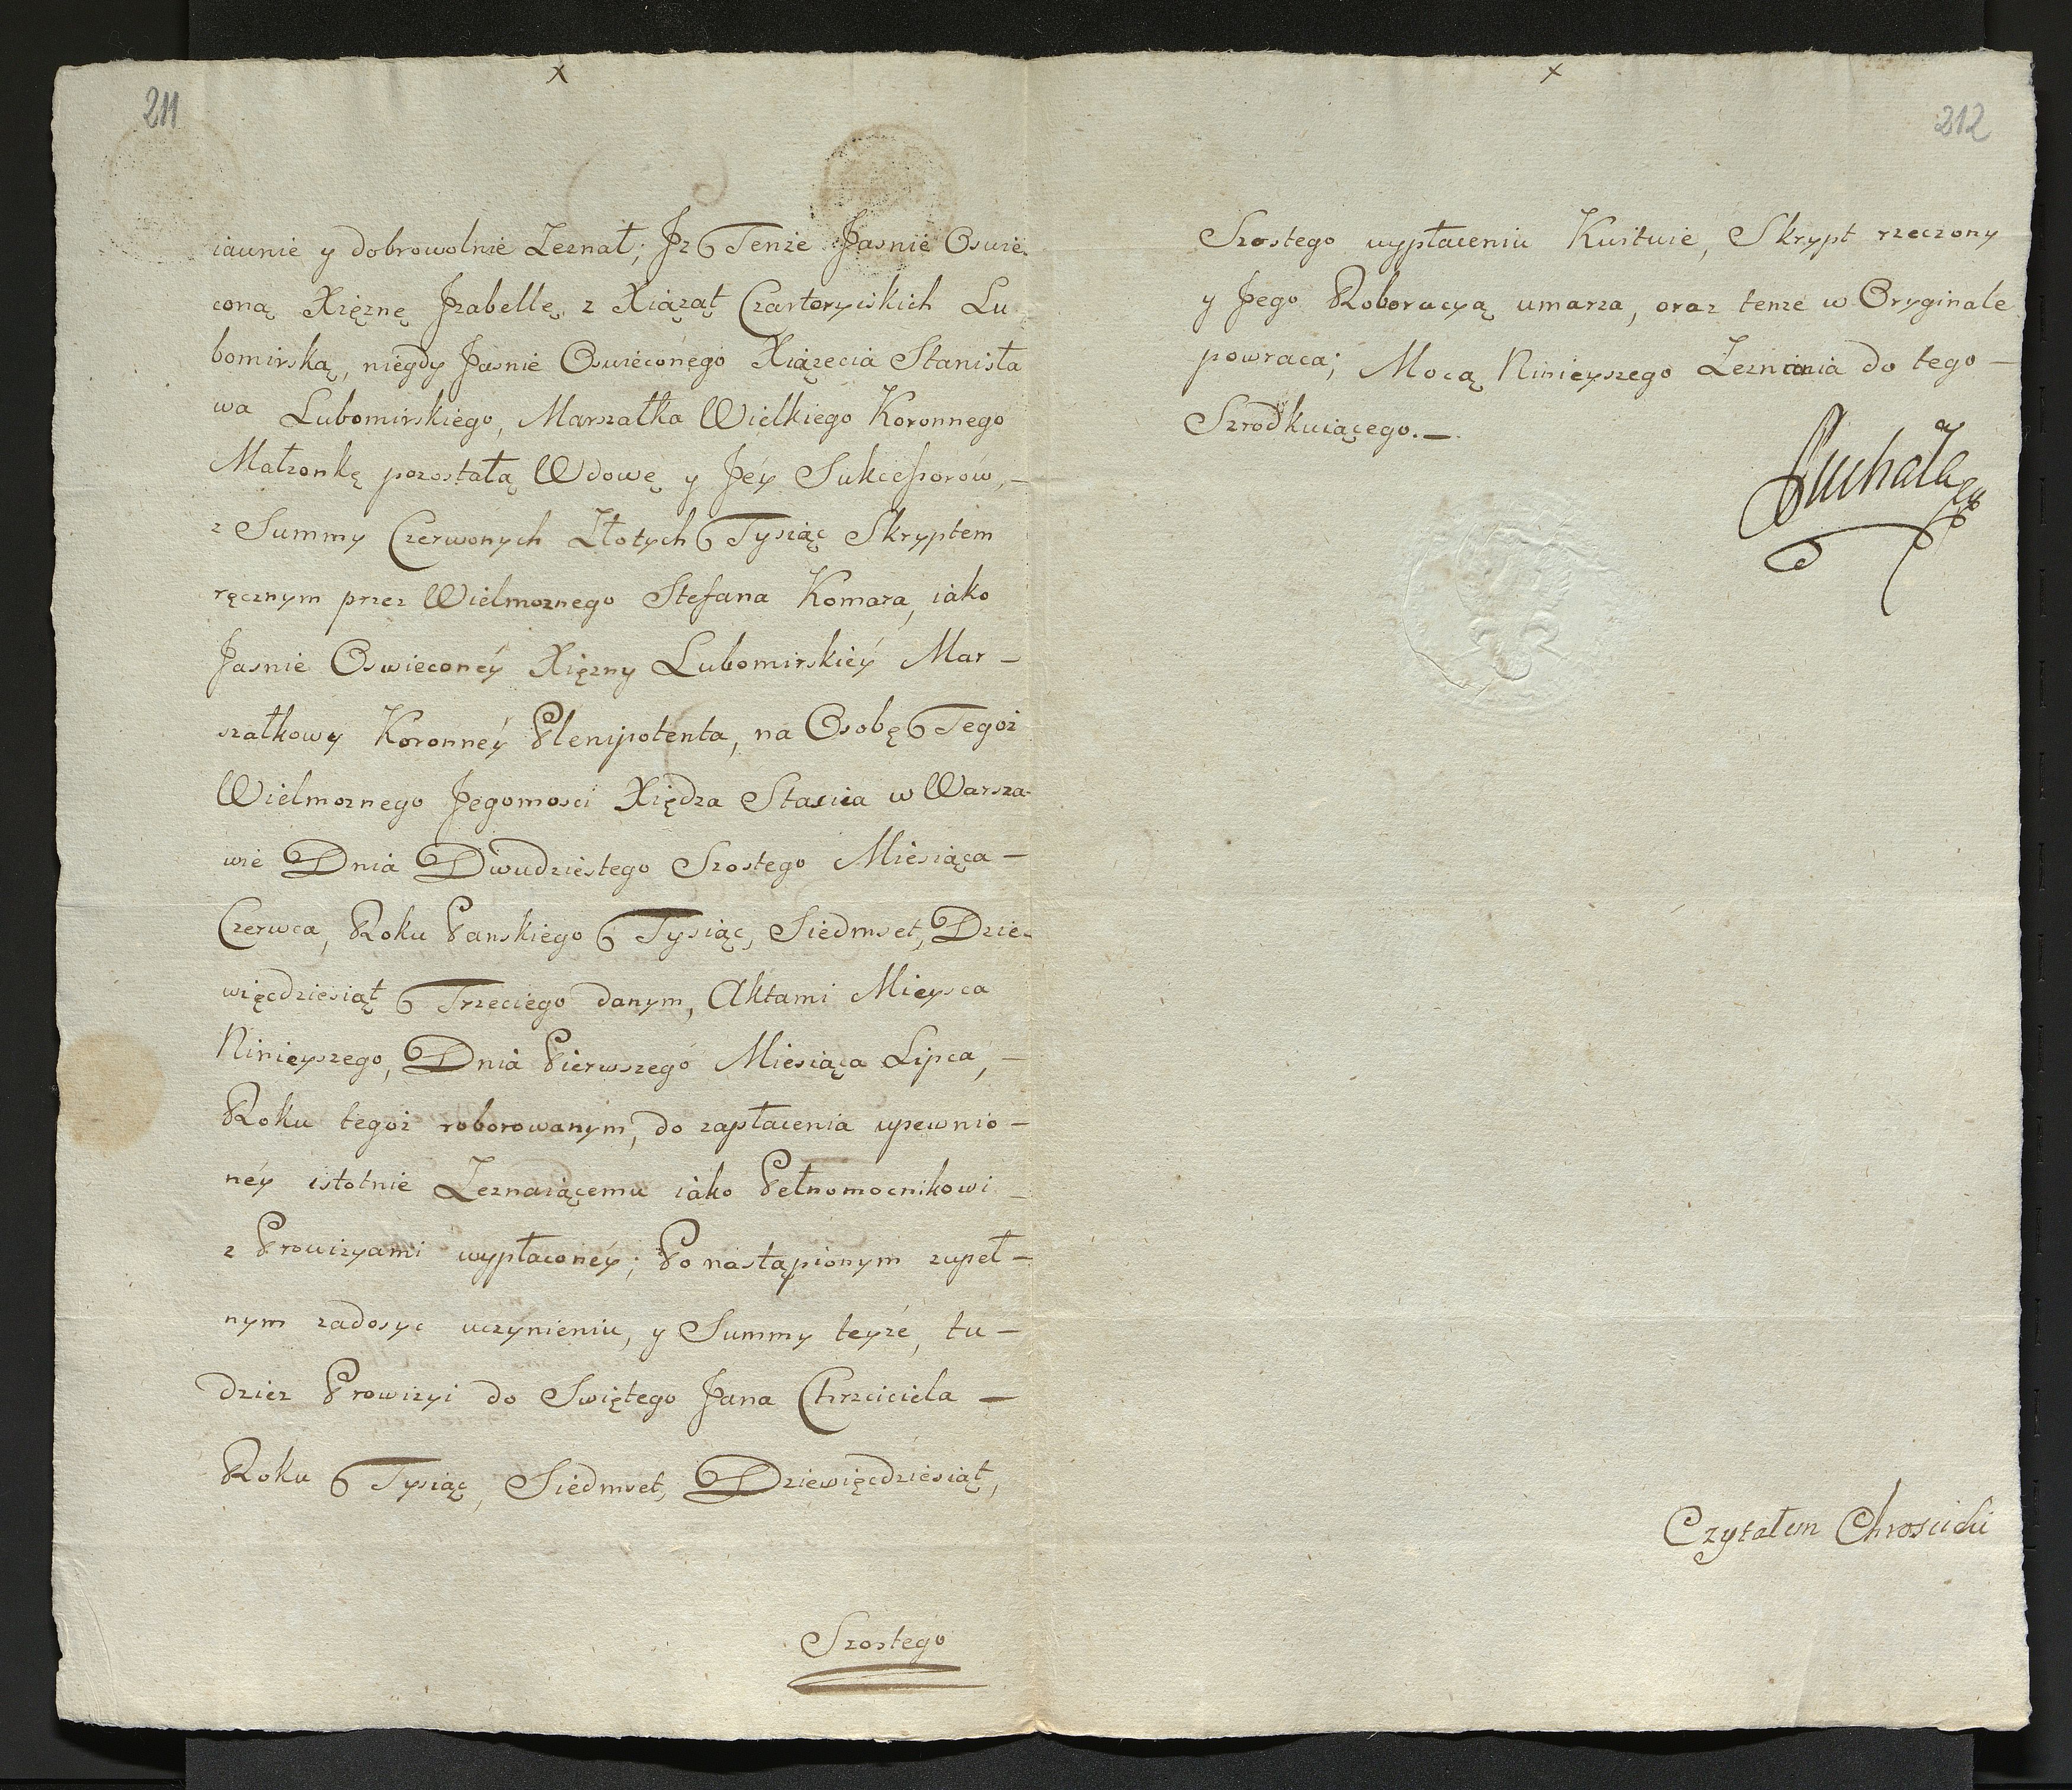 x
211
iawnie y dobrowolnie Zeznał; Jż Tenże Jasnie Oswie
coną Xiężnę Jzabellę, z Xiążąt Czartoryiskich Lu
bomirską, niegdy Jasnie Oswieconego Xiążęcia Stanisła
wa Lubomirskiego, Marszałka Wielkiego Koronnego
Małżonkę pozostałą Wdowę y Jey Sukcessorow, –
z Summy Czerwonych Złotych Tysiąc Skryptem
ręcznym przez Wielmożnego Stefana Komara, iako
Jasnie Oswieconey Xiężny Lubomirskiey Mar –
szałkowy Koronney Plenipotenta, na Osobę Tegoż
Wielmożnego Jegomosci Xiędza Stasica w Warsza-
wie Dnia Dwudziestego Szostego Miesiąca –
Czerwca, Roku Panskiego Tysiąc, Siedmset, Dzie-
więcdziesiąt Trzeciego danym, Aktami Mieysca
Ninieyszego, Dnia Pierwszego Miesiąca Lipca, –
Roku tegoż roborowanym, do zapłacenia upewnio –
ney istotnie Zeznaiącemu iako Pełnomocnikowi –
z Prowizyami wypłaconey; Po nastąpionym zupeł –
nym zadosyc uczynieniu, y Summy teyże, tu –
dzież Prowizyi do Swiętego Jana Chrzciciela –
Roku Tysiąc, Siedmset, Dziewięcdziesiąt,
Szostego
x
212
Szostego wypłaceniu Kwituie, Skrypt rzeczony
y Jego Roboracyą umarza, oraz tenże w Oryginale
powraca; Mocą Ninieyszego Zeznania do tego –
Szrodkuiącego. –
Czytałem Chroscicki